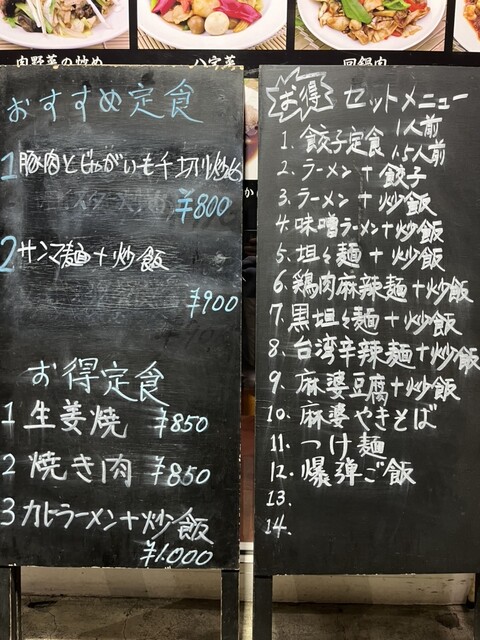 肉野菜の炒め
八宝菜
回鍋肉
おすすめ定食
1 豚肉とじゃがいも千切り炒め
¥800
2 サンマー麺+炒飯
¥900
お得定食
1 生姜焼 ¥850
2 焼き肉 ¥850
3 カレーラーメン+炒飯
¥1,000
お得 セットメニュー
1. 餃子定食 1人前
1.5人前
2. ラーメン+餃子
3. ラーメン+炒飯
4. 味噌ラーメン+炒飯
5. 坦々麺+炒飯
6. 鶏肉麻辣麺+炒飯
7. 黒坦々麺+炒飯
8. 台湾辛辣麺+炒飯
9. 麻婆豆腐+炒飯
10. 麻婆やきそば
11. つけ麺
12. 爆弾ご飯
13.
14.